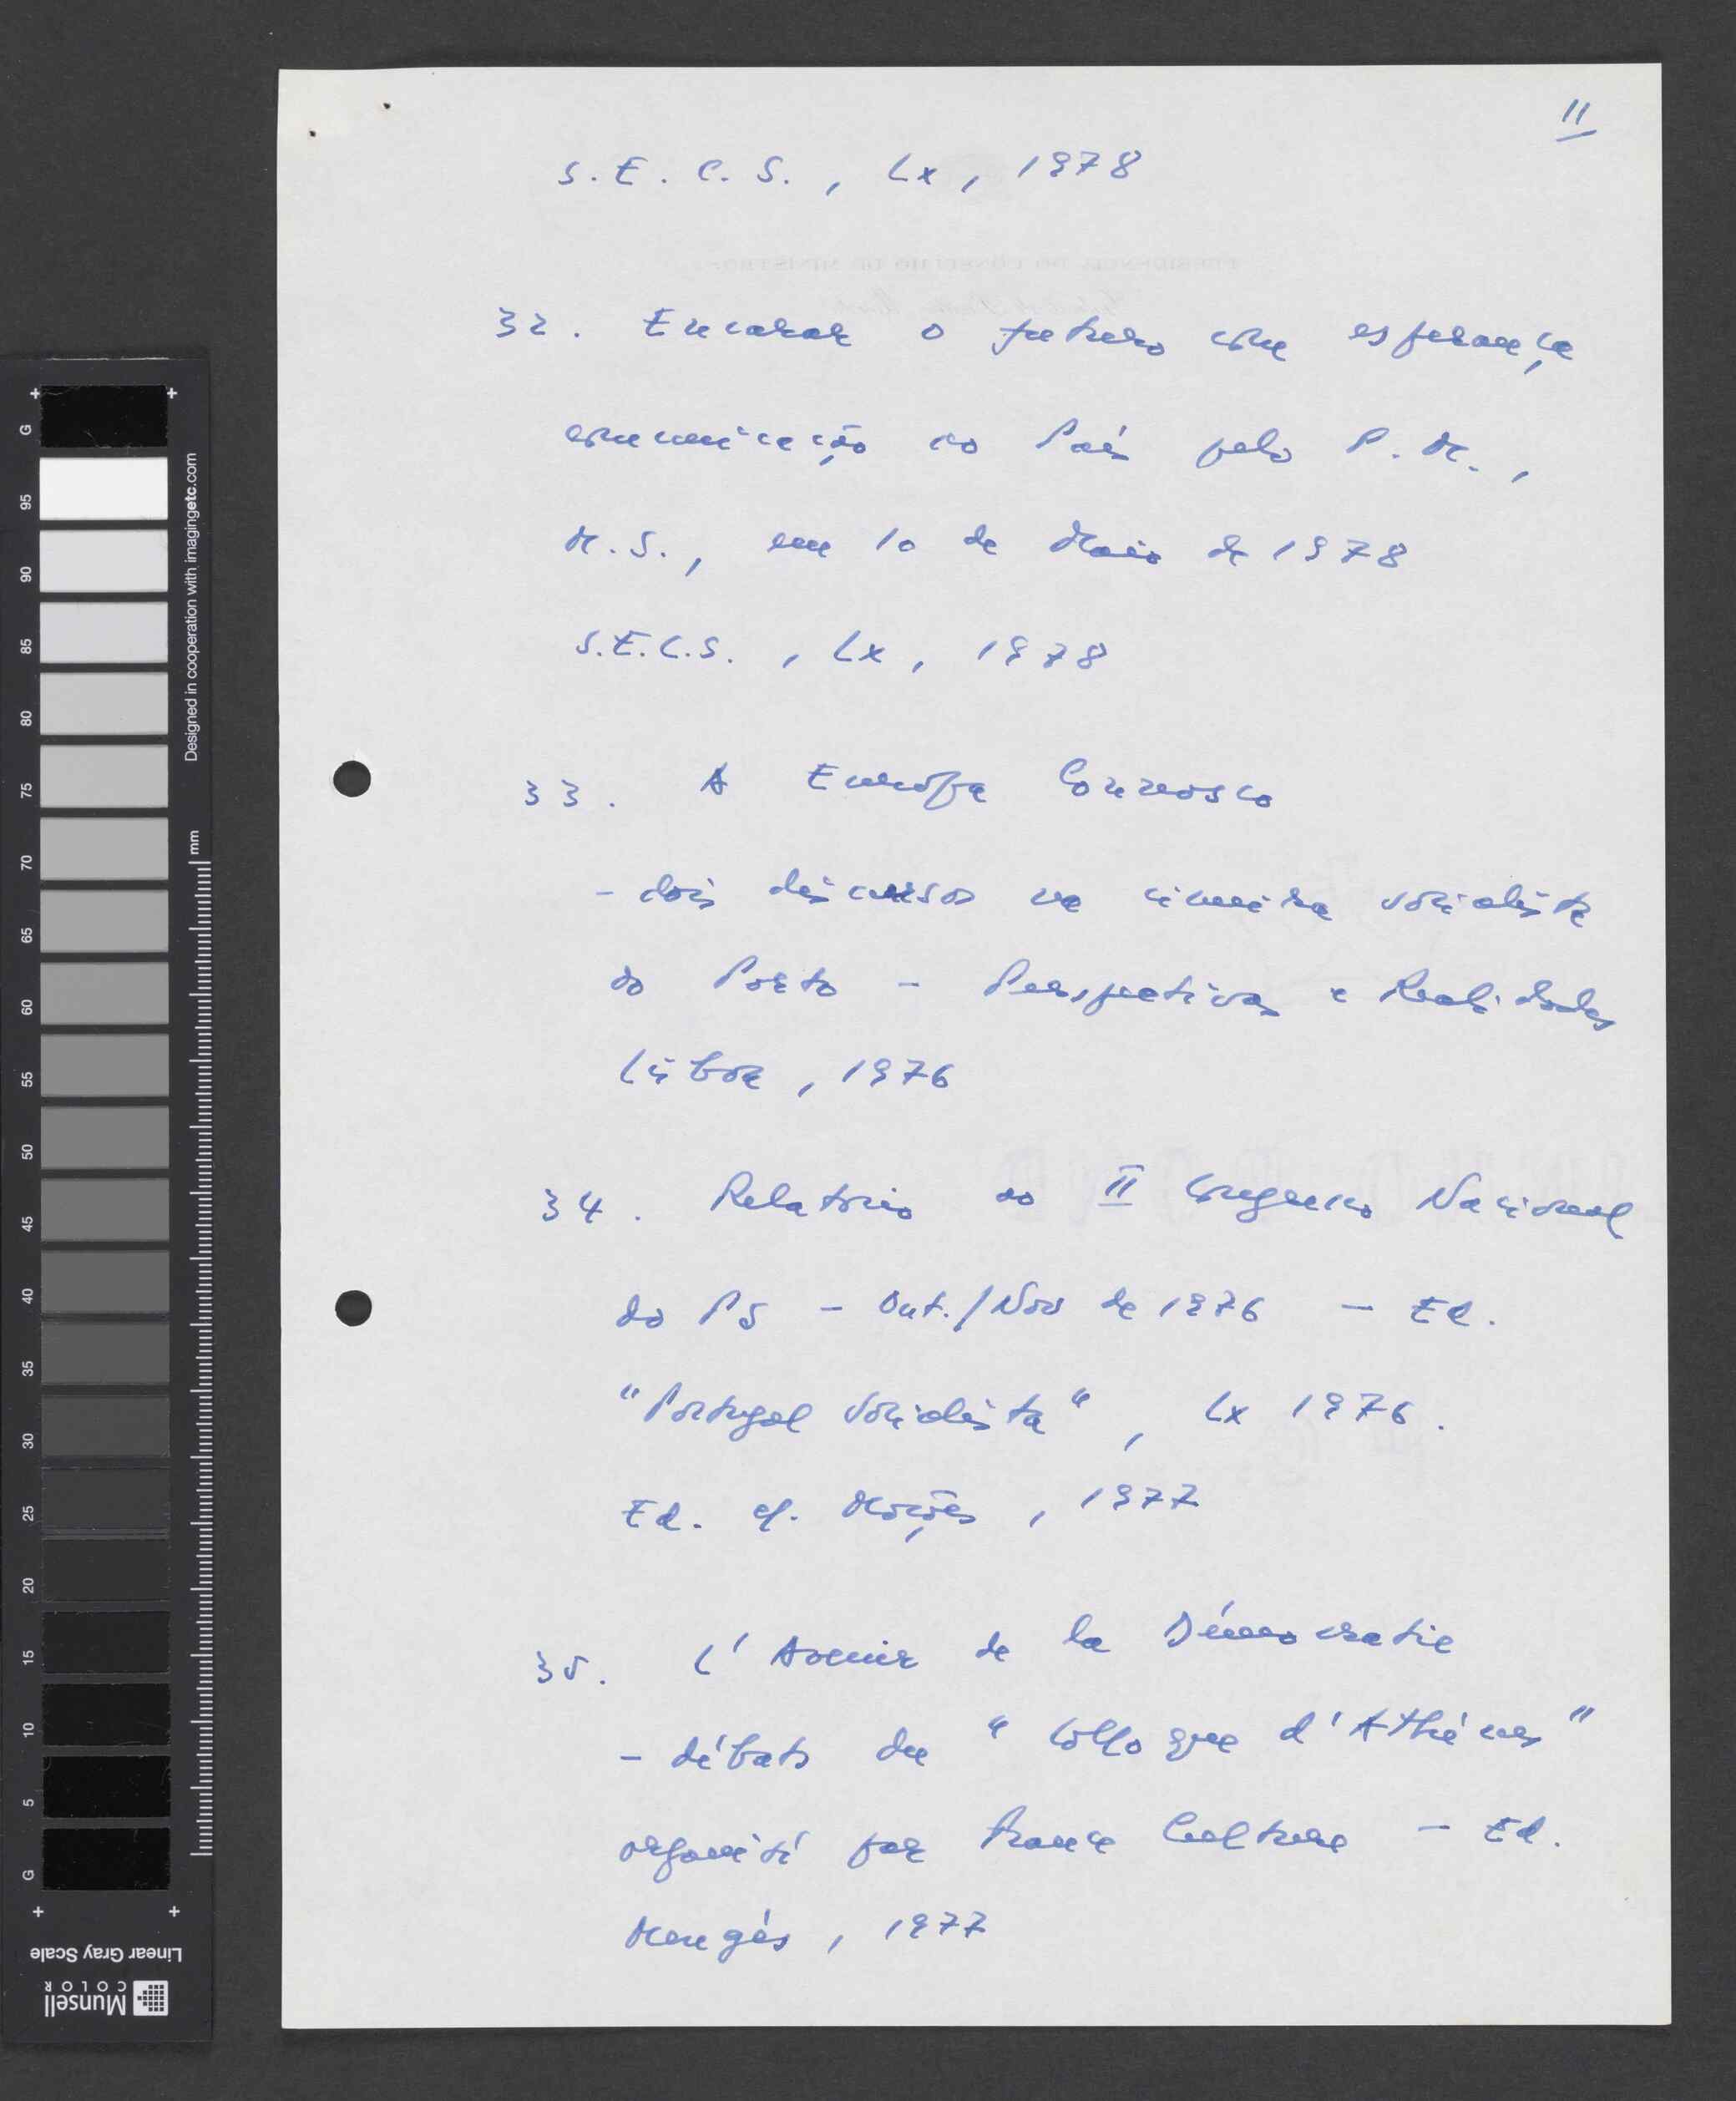 11
S.E.C.S., Lx, 1978
32. Encarar o futuro com esperança
comunicação ao País pelo P.M.,
M.S., em 10 de Maio de 1978
S.E.C.S., Lx, 1978
33. A Europa Connosco
- dois discursos na cimeira socialista
do Porto - Perspectivas e Realidades
Lisboa, 1976
34. Relatório ao II Congresso Nacional
do PS - Out./Nov de 1976 - Ed.
"Portugal Socialista", Lx 1976.
Ed. c/. Moções, 1977
35. L'Avenir de la Démocratie
- débats du "Colloque d'Athénes"
organisé par France Culture - Ed.
Mengès, 1977
G
95
90
85
80
75
70
65
60
55
50
45
40
35
30
25
20
15
10
5
G
mm
Designed in cooperation with imagingetc.com
Linear Gray Scale
Munsell
COLOR